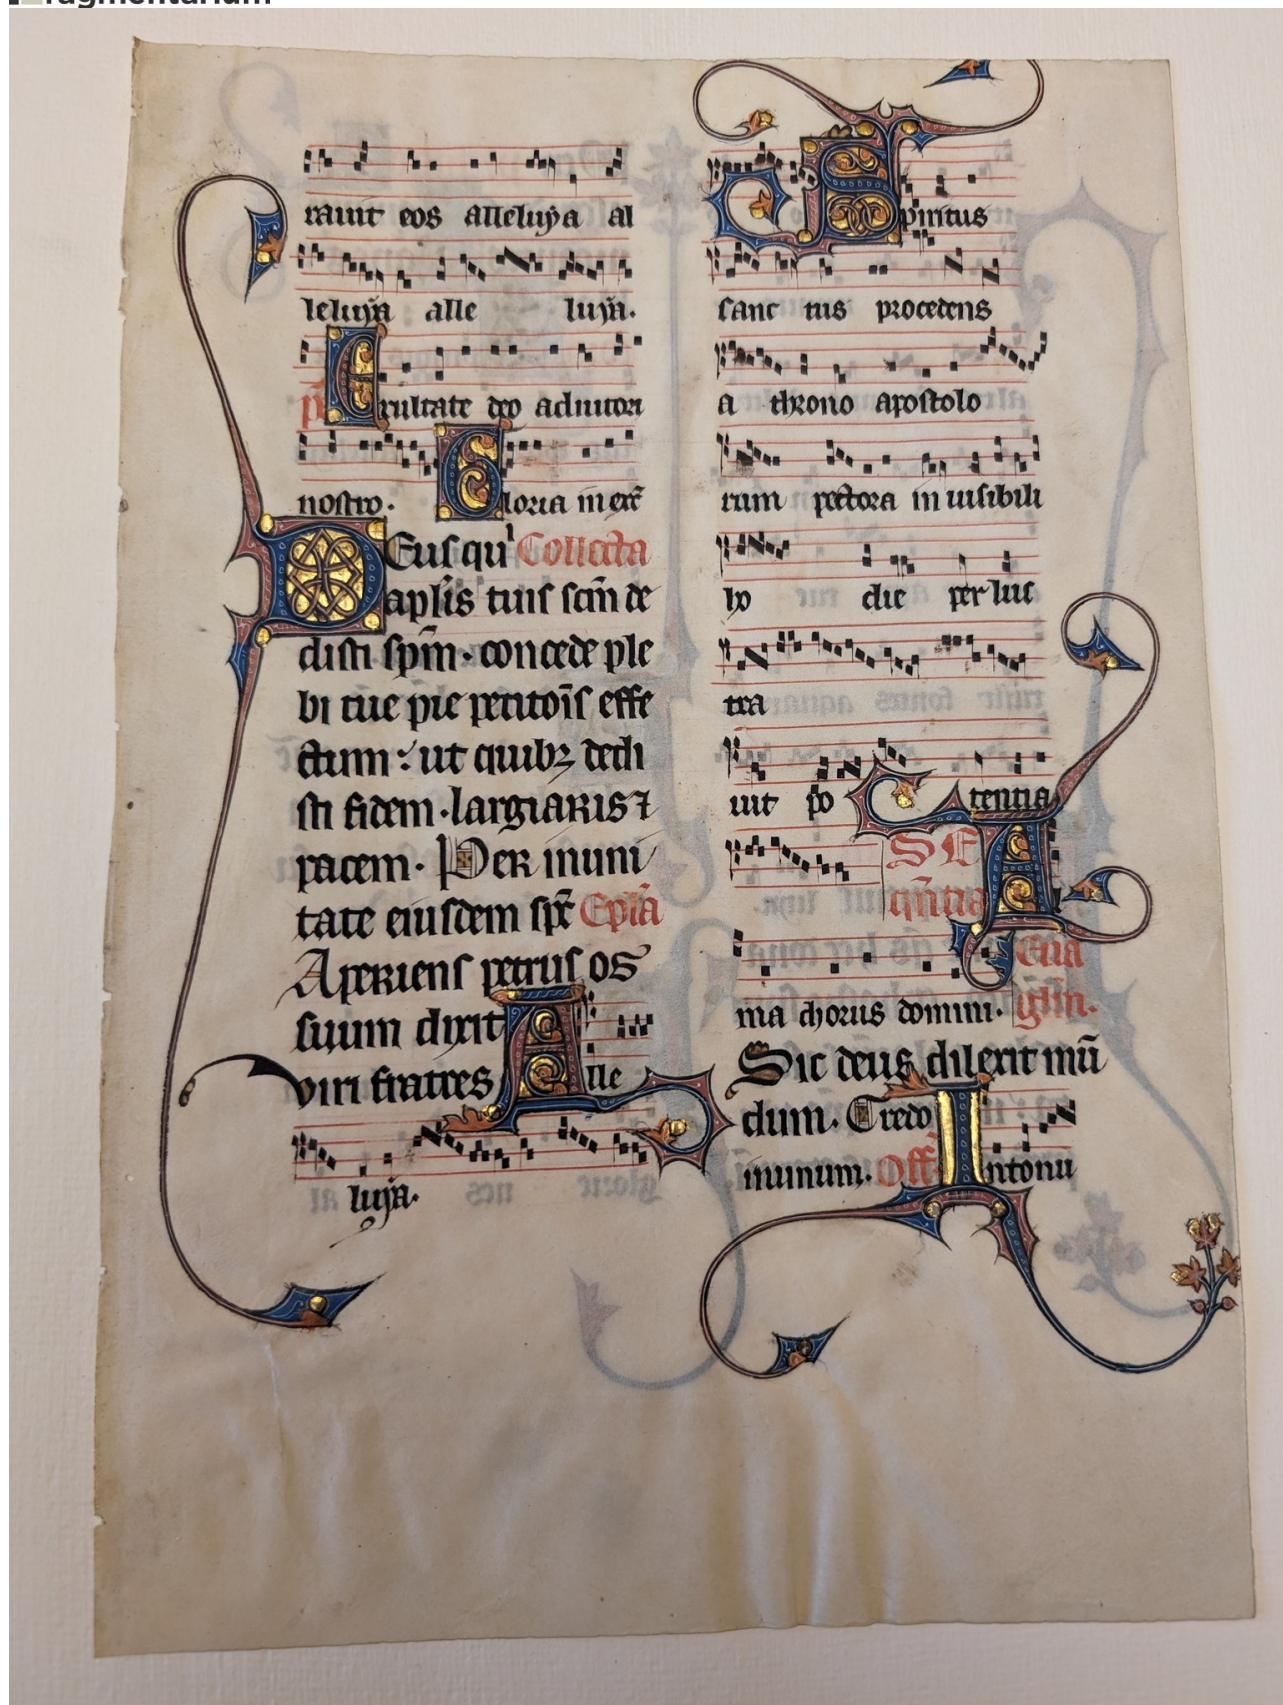 ragmentarium
rauit eos alleluya al
leluya alle luya.
ps Exultate deo adiutori
nostro. Gloria in exc
DEus qui Collecta
aplis tuis scm de
disti spm. concede ple
bi tue pie petitois effe
ctum: ut quibz dedi
sti fidem. largiaris ⁊
pacem. Per inuni
tate eiusdem spc Epla
Aperiens petrus os
suum dixit
viri fratres Alle
luya.
Spiritus
sanc tus procedens
a throno apostolo
rum pectora in uisibili
ho die per lus
tra
uit po tentia
SE
qntia
AEna
ma chorus domini. glm.
Sic deus dilexit mu
dum. Credo
inunum. Off Intonu